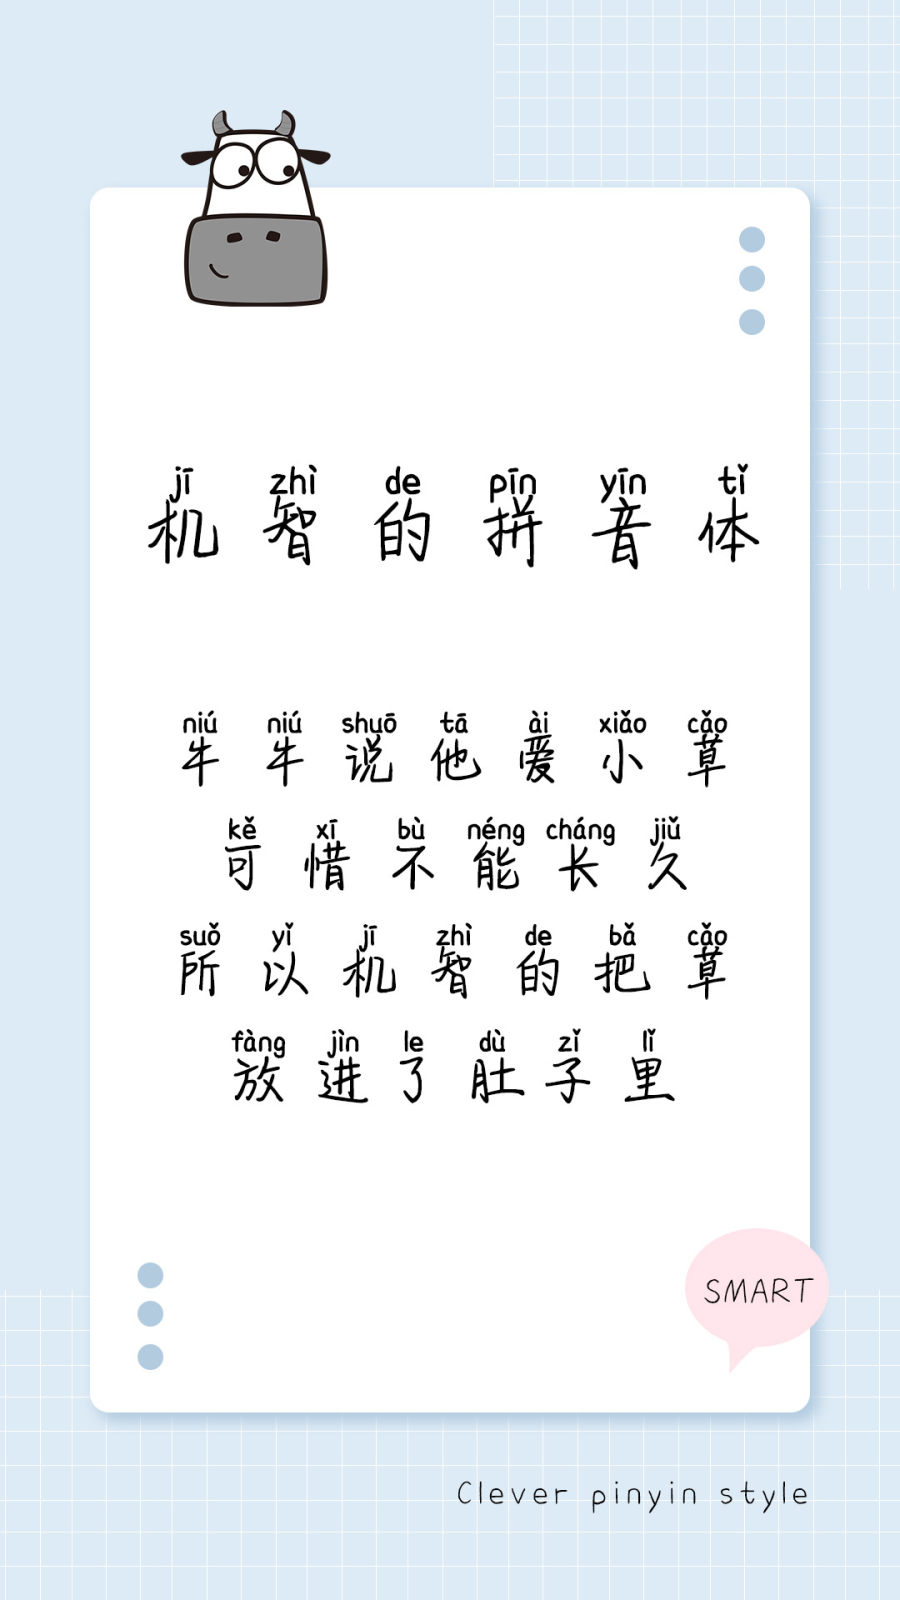 jī zhì de pīn yīn tǐ
机智的拼音体
niú niú shuō tā ài xiǎo cǎo
牛牛说他爱小草
kě xī bù néng cháng jiǔ
可惜不能长久
suǒ yǐ jī zhì de bǎ cǎo
所以机智的把草
fàng jìn le dù zǐ lǐ
放进了肚子里
SMART
Clever pinyin style